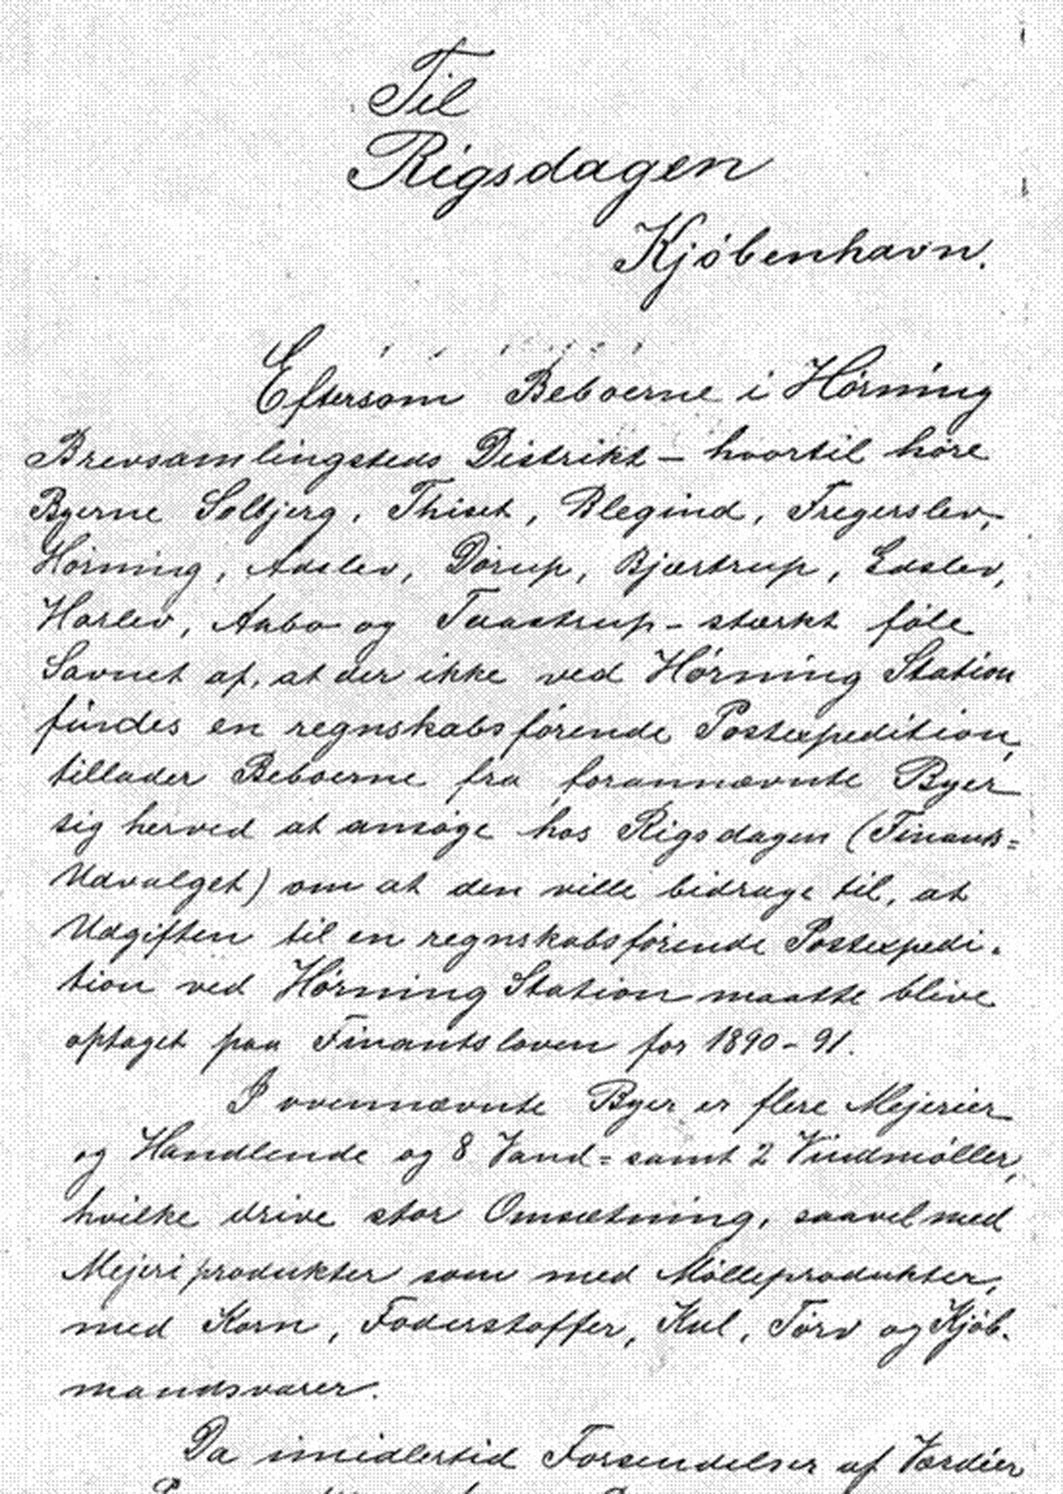 Til
Rigsdagen
Kjóbenhavn.
Eftersom Beboerne i Hórning
Brevsamlingsteds Distrikt – hvortil hóre
Byerne Solbjerg, Thiset, Blegind, Fregerslev,
Hórning, Adslev, Dórup, Bjærtrup, Edslev,
Harlev, Aabo og Taastrup – stærkt fóle
Savnet af, at der ikke ved Hórning Station
findes en regnskabsfórende Postexpedition,
tillader Beboerne fra forannævnte Byer
sig herved at ansóge hos Rigsdagen (Finants=
Udvalget) om at den ville bidrage til, at
Udgiften til en regnskabsfórende Postexpedi-
tion ved Hórning Station maatte blive
optaget paa Finantsloven for 1890-91.
I ovennævnte Byer er flere Mejerier
og Handlende og 8 Vand= samt 2 Vindmóller,
hvilke drive stor Omsætning, saavel med
Mejeriprodukter som med Mólleprodukter,
med Korn, Foderstoffer, Kul, Tórv og Kjób-
mandsvarer.
Da imidlertid Forsendelser af Værdier